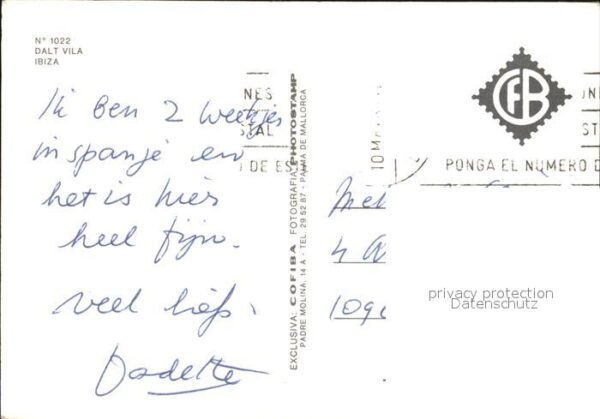 Nº 1022
DALT VILA
IBIZA
Ik Ben 2 weekjes
in spanje en
het is hier
heel fijn.
veel liefs.
Odette
EXCLUSIVA: COFIBA FOTOGRAFIA PHOTOSTAMP
PADRE MOLINA, 14 A - TEL. 29 52 87 - PALMA DE MALLORCA
NES
STAL
O DE ES
10 M
CFB
ONE
ST
PONGA EL NUMERO D
Me
4
109
privacy protection
Datenschutz